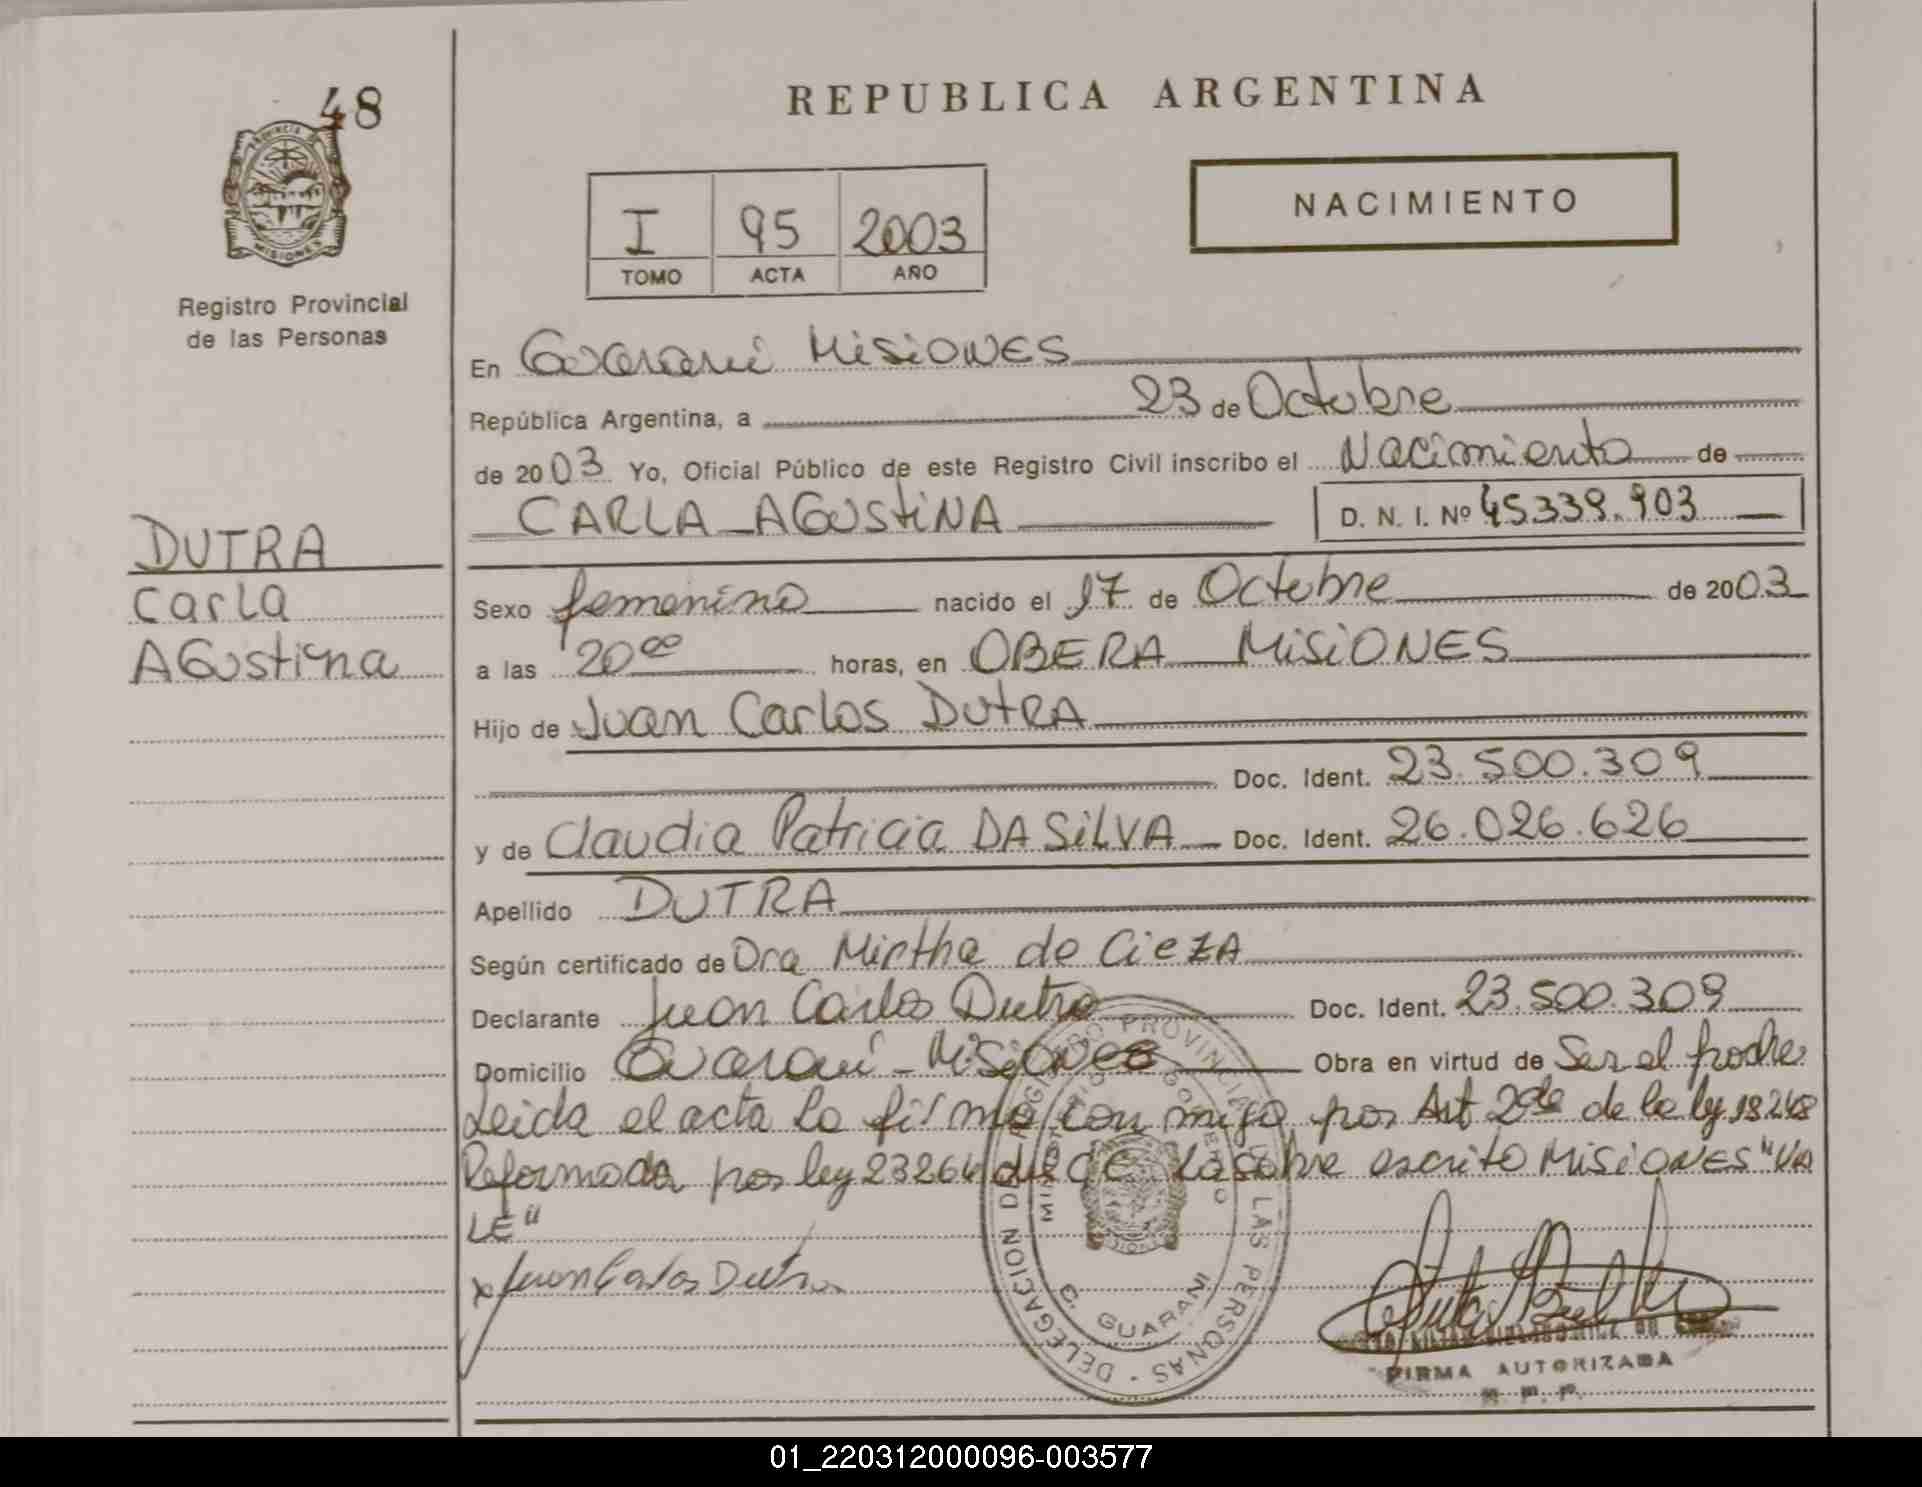 48
PROVINCIA DE
MISIONES
Registro Provincial
de las Personas
DUTRA
Carla
AGustina
REPUBLICA ARGENTINA
I 95 2003
TOMO ACTA AÑO
NACIMIENTO
En Guarani MisiONES
República Argentina, a 23 de Octubre
de 2003 Yo, Oficial Público de este Registro Civil inscribo el Nacimiento de
CARLA AGUStiNA D. N. I. Nº 45.339.903
Sexo femenino nacido el 17 de Octubre de 2003
a las 20ºº horas, en OBERA MisiONES
Hijo de Juan Carlos DutRA
Doc. Ident. 23.500.309
y de Claudia Patricia DA SiLVA Doc. Ident. 26.026.626
Apellido DUTRA
Según certificado de Dra Mirtha de CieZA
Declarante Juan Carlos Dutra Doc. Ident. 23.500.309
Domicilio Guarani - MisiONES Obra en virtud de Ser el padre
Leida el acta la firma con migo por Art 2do de la ley 18248
Reformada por ley 23264 del CC Lo sobre escrito MisiONES "VA
LE"
x Juan Carlos Dutra
DELEGACION DE REGISTRO PROVINCIAL DE LAS PERSONAS
MINISTERIO DE GOBIERNO
C. GUARANI
FIRMA AUTORIZADA
R. P. P.
01_220312000096-003577